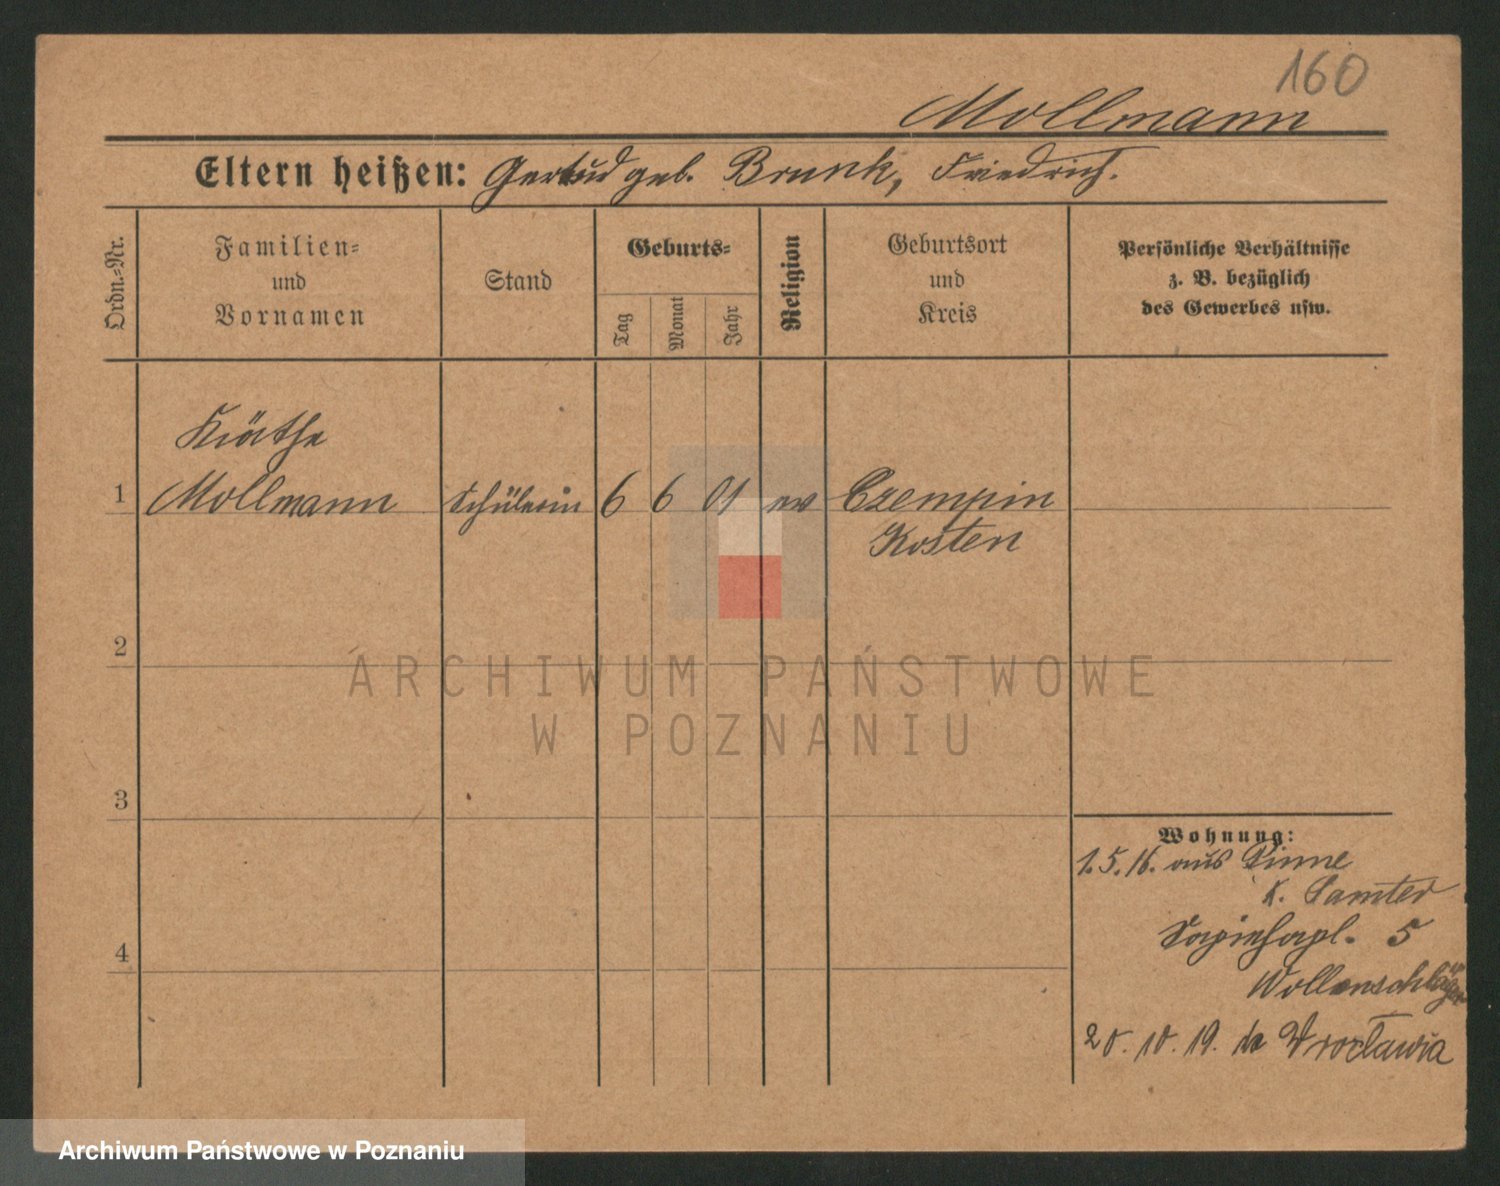 160
Mollmann
Eltern heißen: Gertrud geb. Brunk, Friedrich.
Ordn.-Nr.
Familien-
und
Vornamen
Stand
Geburts-
Tag
Monat
Jahr
Religion
Geburtsort
und
Kreis
Persönliche Verhältnisse
z. B. bezüglich
des Gewerbes usw.
Käthe
1 Mollmann Schülerin 6 6 01 ev Czempin
Kosten
2
ARCHIWUM PAŃSTWOWE
W POZNANIU
3
Wohnung:
1.5.16. aus Pinne
K. Samter
Sapiehapl. 5
4
Wollenschläger
20.10.19. do Wrocławia
Archiwum Państwowe w Poznaniu